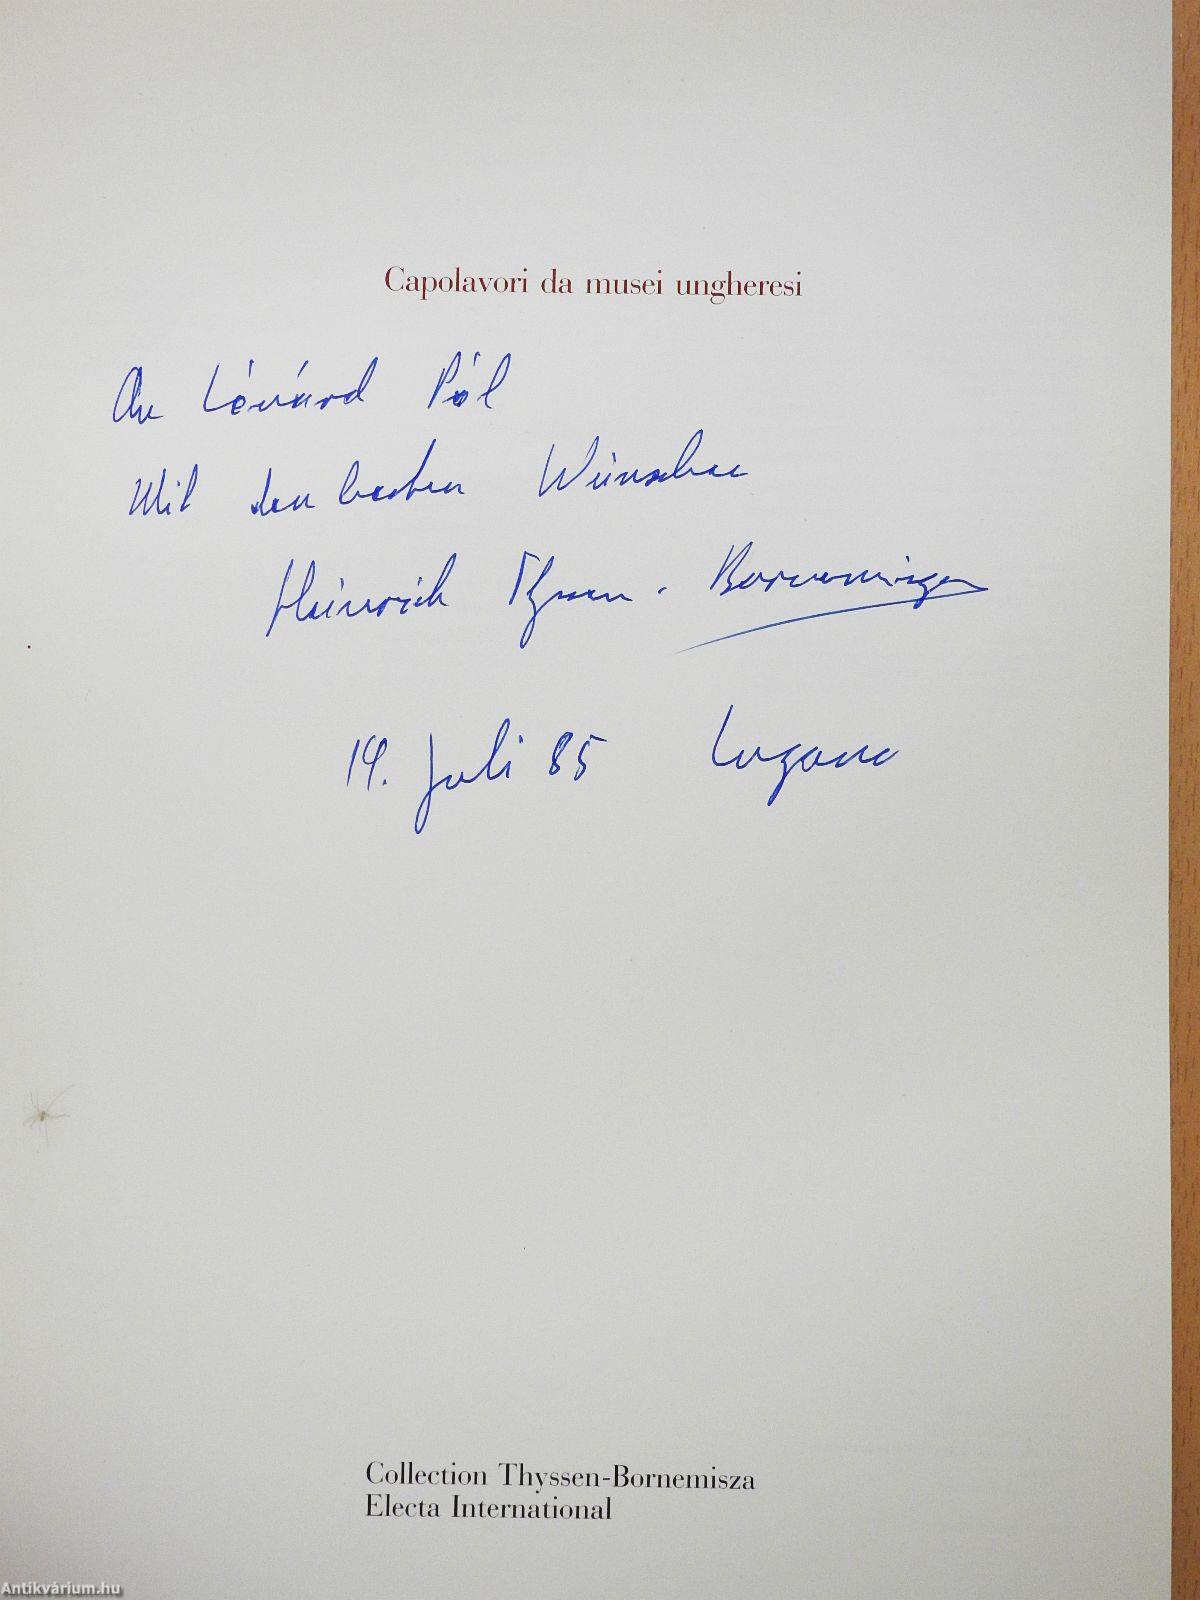 Capolavori da musei ungheresi
An Lévárd Pál
Mit den besten Wünschen
Heinrich Thyssen-Bornemisza
14. Juli 85 Lugano
Collection Thyssen-Bornemisza
Electa International
Antikvárium.hu